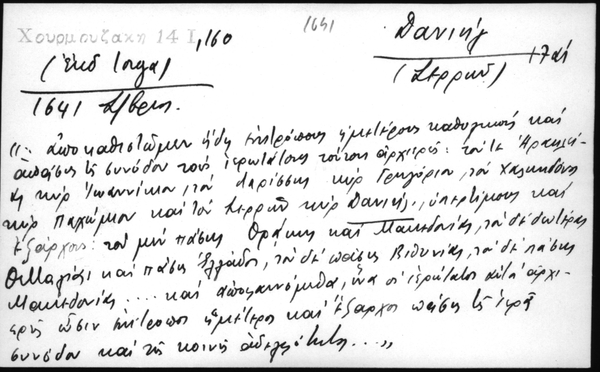 Χουρμουζάκη 14 Ι, 160
1641
Δανιήλ
(Σερρῶν)
(ἐκδ Ιοργα)
1641 Σ/βρις.
«: ἀποκαθιστῶμεν ἤδη ἐπιτρόπους ἡμετέρους καθολικούς καὶ
ἁπάσης τῆς συνόδου τοὺς ἱερωτάτους τούτους ἀρχιερεῖς: τόν τε Ἡρακλεί-
ας κύρ Ἰωαννίκιον, τόν Λαρίσσης κύρ Γρηγόριον, τόν Χαλκηδόνος
κύρ Παχώμιον καὶ τόν Σερρῶν κύρ Δανιήλ, ὑπερτίμους καὶ
ἐξάρχους: τοῦ μέν πάσης Θράκης καὶ Μακεδονίας, τοῦ δέ δευτέρας
Θετταλίας καὶ πάσης Ἑλλάδος, τοῦ δέ πάσης Βιθυνίας, τοῦ δέ πάσης
Μακεδονίας .... καὶ ἀποφαινόμεθα, ἵνα οἱ ἱερώτατοι αὐτοί ἀρχι-
ερεῖς ὦσιν ἐπίτροποι ἡμέτεροι καὶ ἔξαρχοι πάσης τῆς ἱερᾶς
συνόδου καὶ τῆς κοινῆς ἀδελφότητος ...»